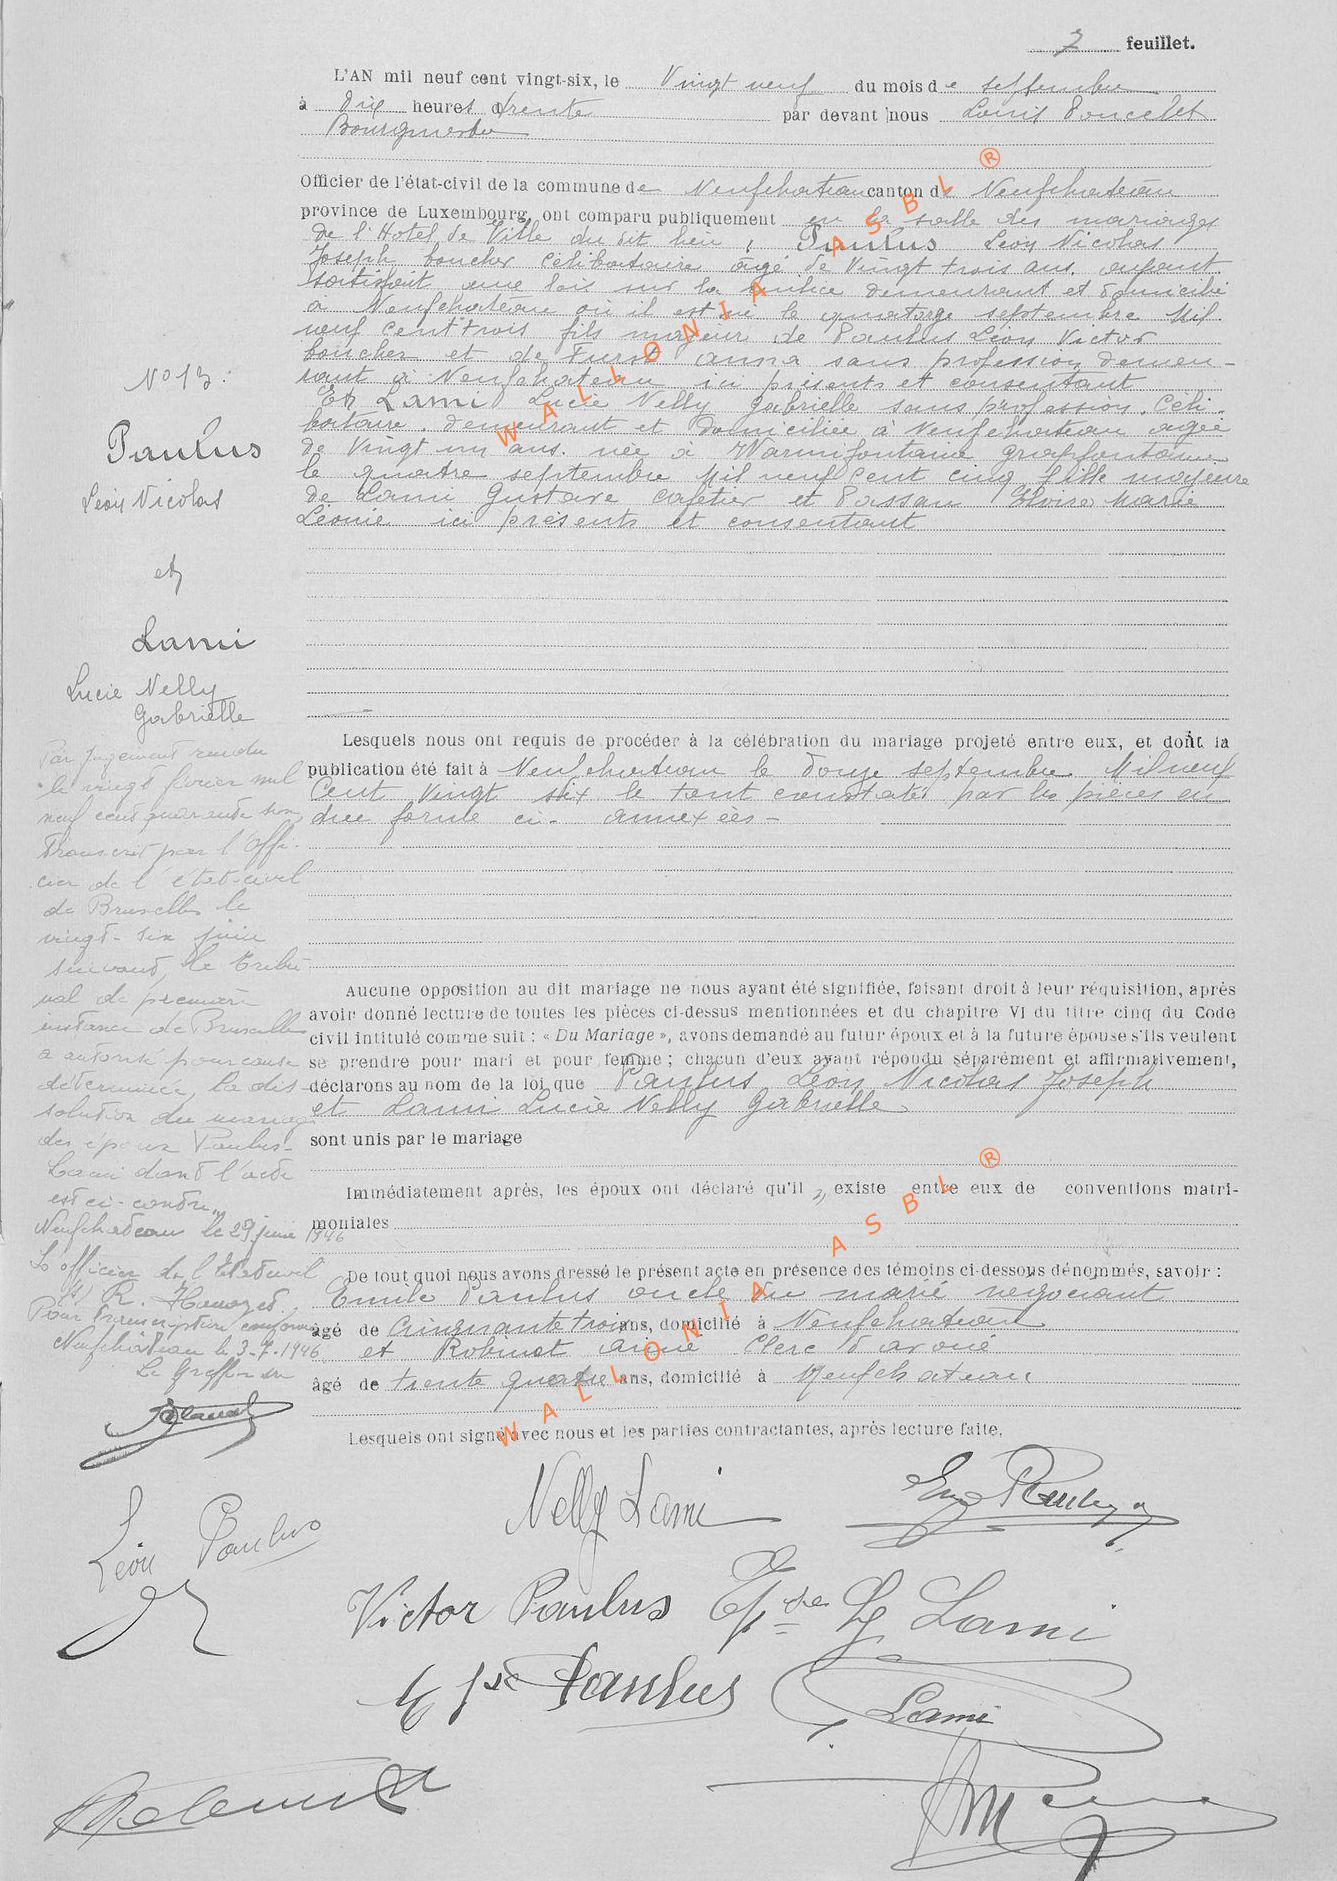 7 feuillet.
L'AN mil neuf cent vingt-six, le Vingt neuf du mois de septembre
à Dix heures trente par devant nous Louis Poncelet
Bourgmestre
Officier de l'état-civil de la commune de Neufchateau canton de Neufchateau
province de Luxembourg, ont comparu publiquement en la salle des mariages
de l'Hotel de Ville du dit lieu, Paulus Léon Nicolas
Joseph boucher célibataire âgé de Vingt trois ans, ayant
satisfait aux lois sur la milice demeurant et domicilié
à Neufchateau où il est né le quatorze septembre Mil
neuf cent trois fils majeur de Paulus Léon Victor
boucher et de Furst Anna sans profession demeu-
rant à Neufchateau ici présents et consentant
Et Lami Lucie Nelly Gabrielle sans profession, Céli-
bataire, demeurant et domiciliée à Neufchateau agée
de Vingt un ans, née à Warmifontaine Grapfontaine
le quatre septembre Mil neuf cent cinq fille majeure
de Lami Gustave cafetier et Passau Eloise Marie
Léonie ici présents et consentant
No 13.
Paulus
Léon Nicolas
et
Lami
Lucie Nelly
Gabrielle
Par jugement rendu
le vingt février mil
neuf cent quarante six
transcrit par l'offi-
cier de l'état-civil
de Bruxelles le
vingt-six juin
suivant, le tribu-
nal de première
instance de Bruxelles
a autorisé pour cause
déterminée, la dis-
solution du mariage
des époux Paulus-
Lami dont l'acte
est ci-contre,
Neufchateau le 29 juin 1946
L'officier de l'état civil
(s) R.
Pour transcription conforme
Neufchâteau le 3-7-1946
Le Greffier
Lesquels nous ont requis de procéder à la célébration du mariage projeté entre eux, et dont la
publication été fait à Neufchateau le douze septembre Mil neuf
Cent Vingt six le tout constaté par les pièces en
due forme ci-annexées -
Aucune opposition au dit mariage ne nous ayant été signifiée, faisant droit à leur réquisition, après
avoir donné lecture de toutes les pièces ci-dessus mentionnées et du chapitre VI du titre cinq du Code
civil intitulé comme suit : « Du Mariage », avons demandé au futur époux et à la future épouse s'ils veulent
se prendre pour mari et pour femme ; chacun d'eux ayant répondu séparément et affirmativement,
déclarons au nom de la loi que Paulus Léon Nicolas Joseph
et Lami Lucie Nelly Gabrielle
sont unis par le mariage
Immédiatement après, les époux ont déclaré qu'il existe entre eux de conventions matri-
moniales
De tout quoi nous avons dressé le présent acte en présence des témoins ci-dessous dénommés, savoir :
Emile Paulus oncle du marié négociant
âgé de Cinquante trois ans, domicilié à Neufchateau
et Robinet Aimé Clerc d'avoué
âgé de trente quatre ans, domicilié à Neufchateau
Lesquels ont signé avec nous et les parties contractantes, après lecture faite.
Nelly Lami
Léon Paulus
Victor Paulus Epse Lg Lami
Epse Paulus
Lami
WALLONIA ASBL ®
WALLONIA ASBL ®